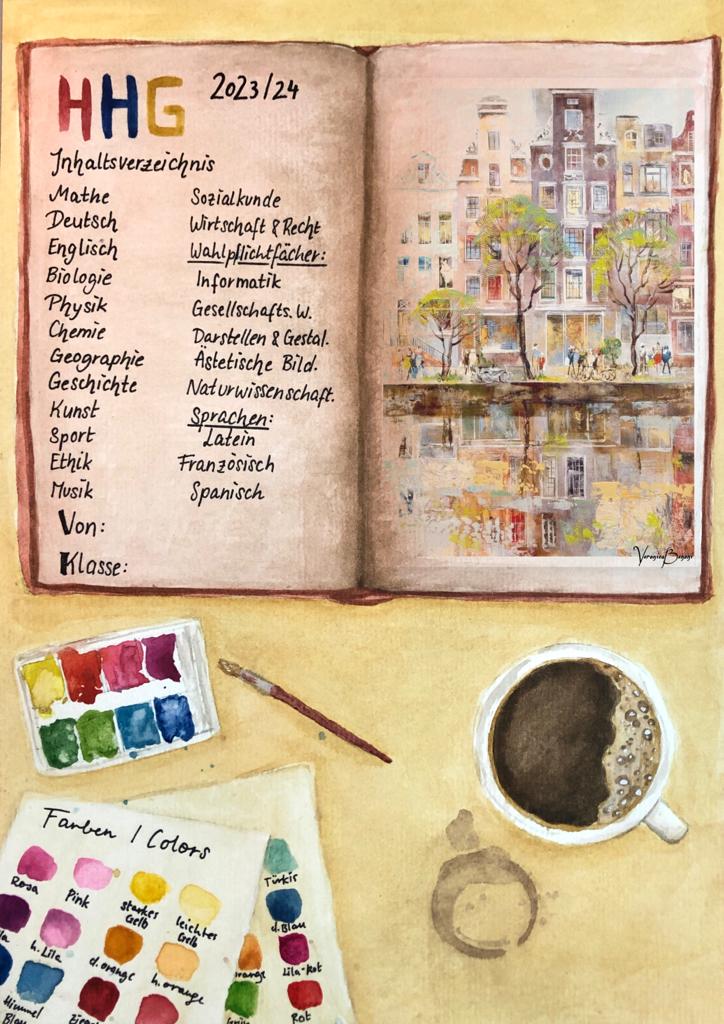 HHG 2023/24
Inhaltsverzeichnis
Mathe
Deutsch
Englisch
Biologie
Physik
Chemie
Geographie
Geschichte
Kunst
Sport
Ethik
Musik
Von:
Klasse:
Sozialkunde
Wirtschaft & Recht
Wahlpflichtfächer:
Informatik
Gesellschafts. W.
Darstellen & Gestal.
Ästetische Bild.
Naturwissenschaft.
Sprachen:
Latein
Französisch
Spanisch
Farben / Colors
Rosa
Pink
starkes
Gelb
leichtes
Gelb
h. Lila
d. orange
h. orange
Himmel
Blau
Türkis
d. Blau
Lila-Rot
Rot